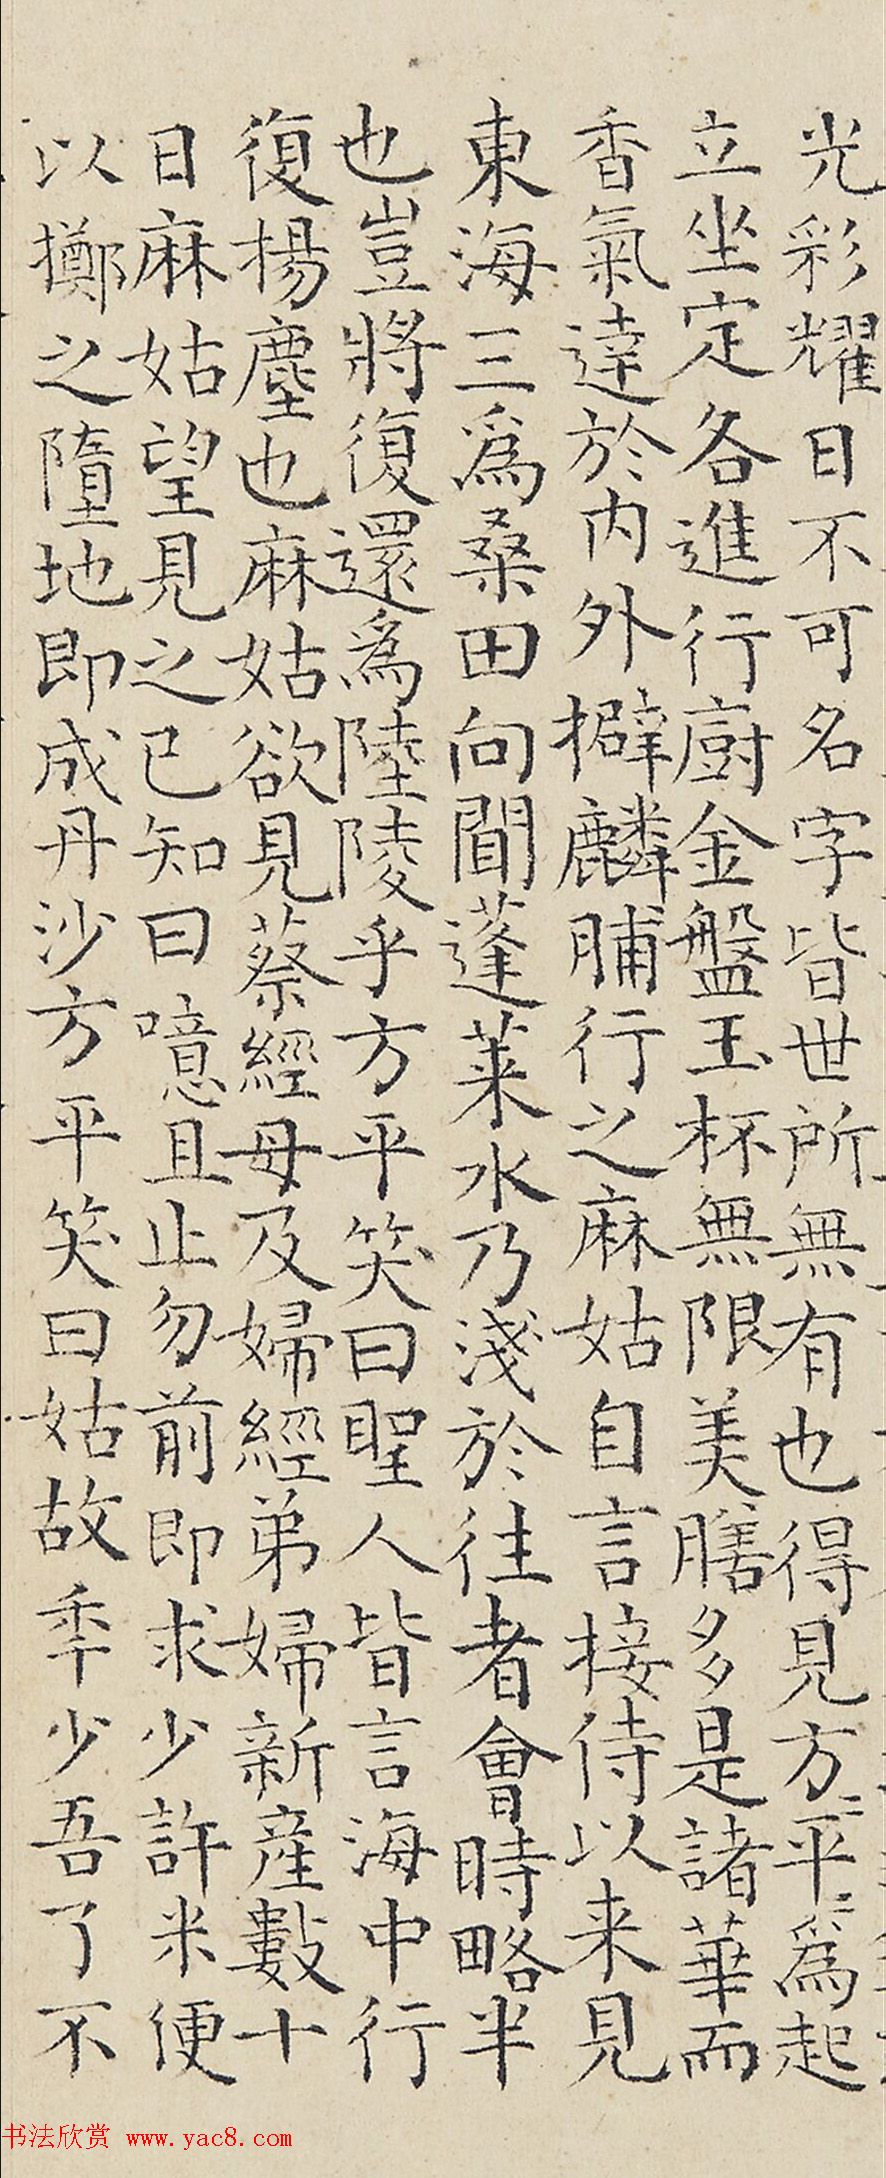 光彩耀日不可名字皆世所無有也得見方平〻爲起
立坐定各進行廚金盤玉杯無限美膳多是諸華而
香氣達於内外擗麟脯行之麻姑自言接侍以来見
東海三爲桑田向聞蓬莱水乃淺於往者會時略半
也豈將復還爲陸陵乎方平笑曰聖人皆言海中行
復揚塵也麻姑欲見蔡經母及婦經弟婦新産數十
日麻姑望見之已知曰噫且止勿前即求少許米便
以擲之墮地即成丹沙方平笑曰姑故秊少吾了不
书法欣赏 www.yac8.com